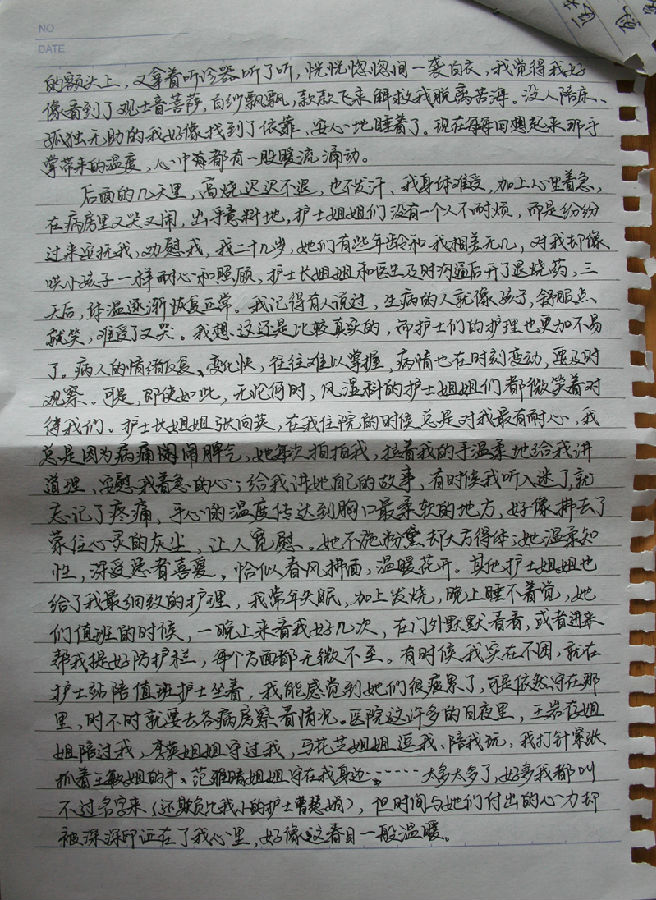 NO
DATE
的额头上,又拿着听诊器听了听,恍恍惚惚间一袭白衣,我觉得我好
像看到了观士音菩萨,白纱飘飘,款款飞来解救我脱离苦海。没人陪床、
孤独无助的我好像找到了依靠,安心地睡着了。现在每每回想起来那手
掌带来的温度,心中都有一股暖流涌动。
后面的几天里,高烧迟迟不退,也不发汗,我身体难受,加上心里着急,
在病房里又哭又闹,出乎意料地,护士姐姐们没有一个人不耐烦,而是纷纷
过来安抚我,劝慰我,我二十几岁,她们有些年龄和我相差无几,对我却像
哄小孩子一样耐心和照顾,护士长姐姐和医生及时沟通后开了退烧药,三
天后,体温逐渐恢复正常。我记得有人说过,生病的人就像孩子,舒服点
就笑,难受了又哭。我想,这还是比较真实的,而护士们的护理也更加不易
了。病人的情绪反复、变化快,往往难以掌握,病情也在时刻变动,要及时
观察。可是,即使如此,无论何时,风湿科的护士姐姐们都微笑着对
待我们。护士长姐姐张向英,在我住院的时候总是对我最有耐心,我
总是因为病痛闹闹脾气,她每次拍拍我,拉着我的手温柔地给我讲
道理,安慰我着急的心;给我讲她自己的故事,有时候我听入迷了,就
忘记了疼痛,手心的温度传达到胸口最柔软的地方,好像拂去了
蒙住心灵的灰尘,让人宽慰。她不施粉黛却大方得体;她温柔知
性,深受患者喜爱,恰似春风拂面,温暖花开。其他护士姐姐也
给了我最细致的护理,我常年失眠,加上发烧,晚上睡不着觉,她
们值班的时候,一晚上来看我好几次,在门外默默看看,或者进来
帮我提好防护栏,每个方面都无微不至。有时候我实在不困,就在
护士站陪值班护士坐着,我能感觉到她们很疲累了,可是依然守在那
里,时不时就要去各病房察看情况。医院这许多的日夜里,王岩在姐
姐陪过我,英姐姐守过我,马花芝姐姐逗我、陪我玩,我打针紧张
抓着王敏姐的手。范雅晴姐姐守在我身边……太多太多了,好多我都叫
不过名字来(还欺负比我小的护士曹慧娟),但时间与她们付出的心力却
被深深印证在了我心里,好像这春日一般温暖。